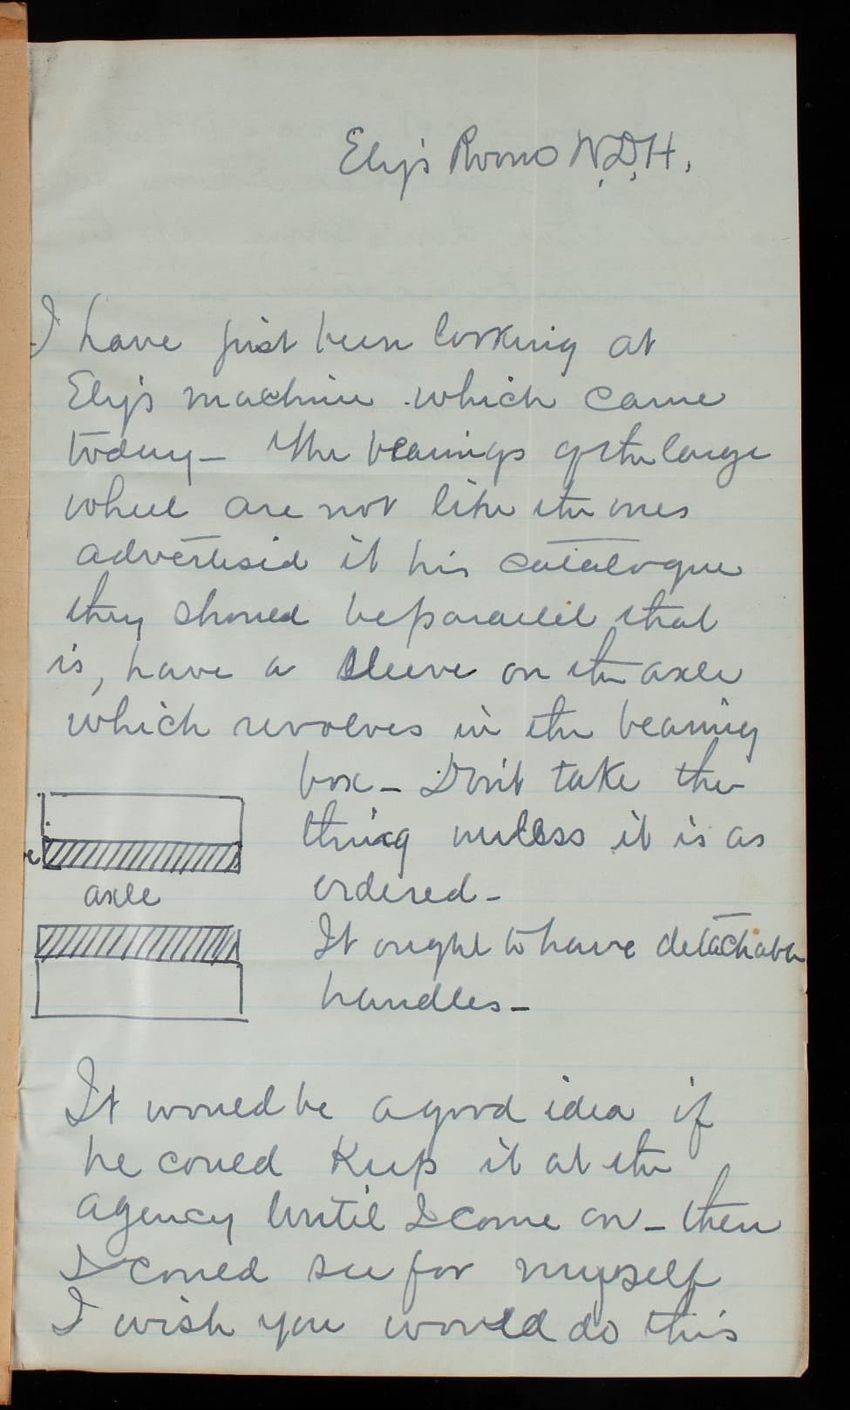 Ely's Room N.D.H.
I have just been looking at
Ely's machine which came
today — The bearings of the large
wheel are not like the ones
advertised it his catalogue
they should be parallel that
is, have a sleeve on the axle
which revolves in the bearing
box — Don't take the
thing unless it is as
ordered —
axle
It ought to have detachable
handles —
It would be a good idea if
he could keep it at the
agency until I come on — then
I could see for myself
I wish you would do this